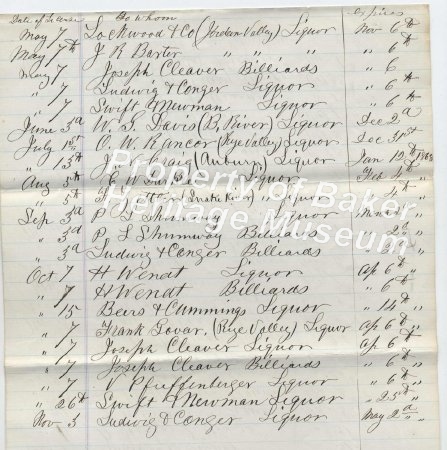 Date of License To Whom Expires
May 7 Lockwood & Co (Jordan Valley) Liquor Nov 6th
May 7th J R Baxter " " " " 6th
May 7 Joseph Cleaver Billiards " 6
" 7 Ludwig & Conger Liquor " 6th
" 7 Swift Newman Liquor " 6th
June 3d W. S. Davis (B. River) Liquor Dec 2d
July 1st O. W. Rancor (Rye Valley) Liquor Dec 31st
" 13th Craig (Auburn) Liquor Jan 12th
Aug 5th Liquor Feb 4th
" 5th " 4th
Sep 3d P L Shumway Liquor
" 3d P L Shumway Billiards
" 3d Ludwig & Conger Billiards
Oct 7 H Wendt Liquor Ap 6th
" 7 H Wendt Billiards " 6th
" 15 Beers & Cummings Liquor " 14th
" 7 Frank Tovar. (Rye Valley) Liquor Ap 6th
" 7 Joseph Cleaver Liquor Ap 6th
" 7 Joseph Cleaver Billiards " 6th
" 7 V Pfeffenberger Liquor " 6th
" 26th Swift Newman Liquor " 25th
Nov 3 Ludwig & Conger Liquor May 2d
Property of Baker
Heritage Museum